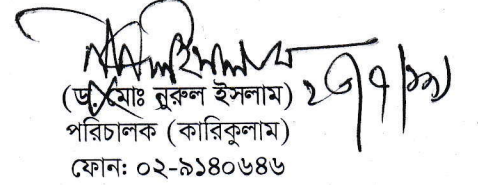 (ড. মোঃ নুরুল ইসলাম)
পরিচালক (কারিকুলাম)
ফোন: ০২-৯১৪০৬৪৬